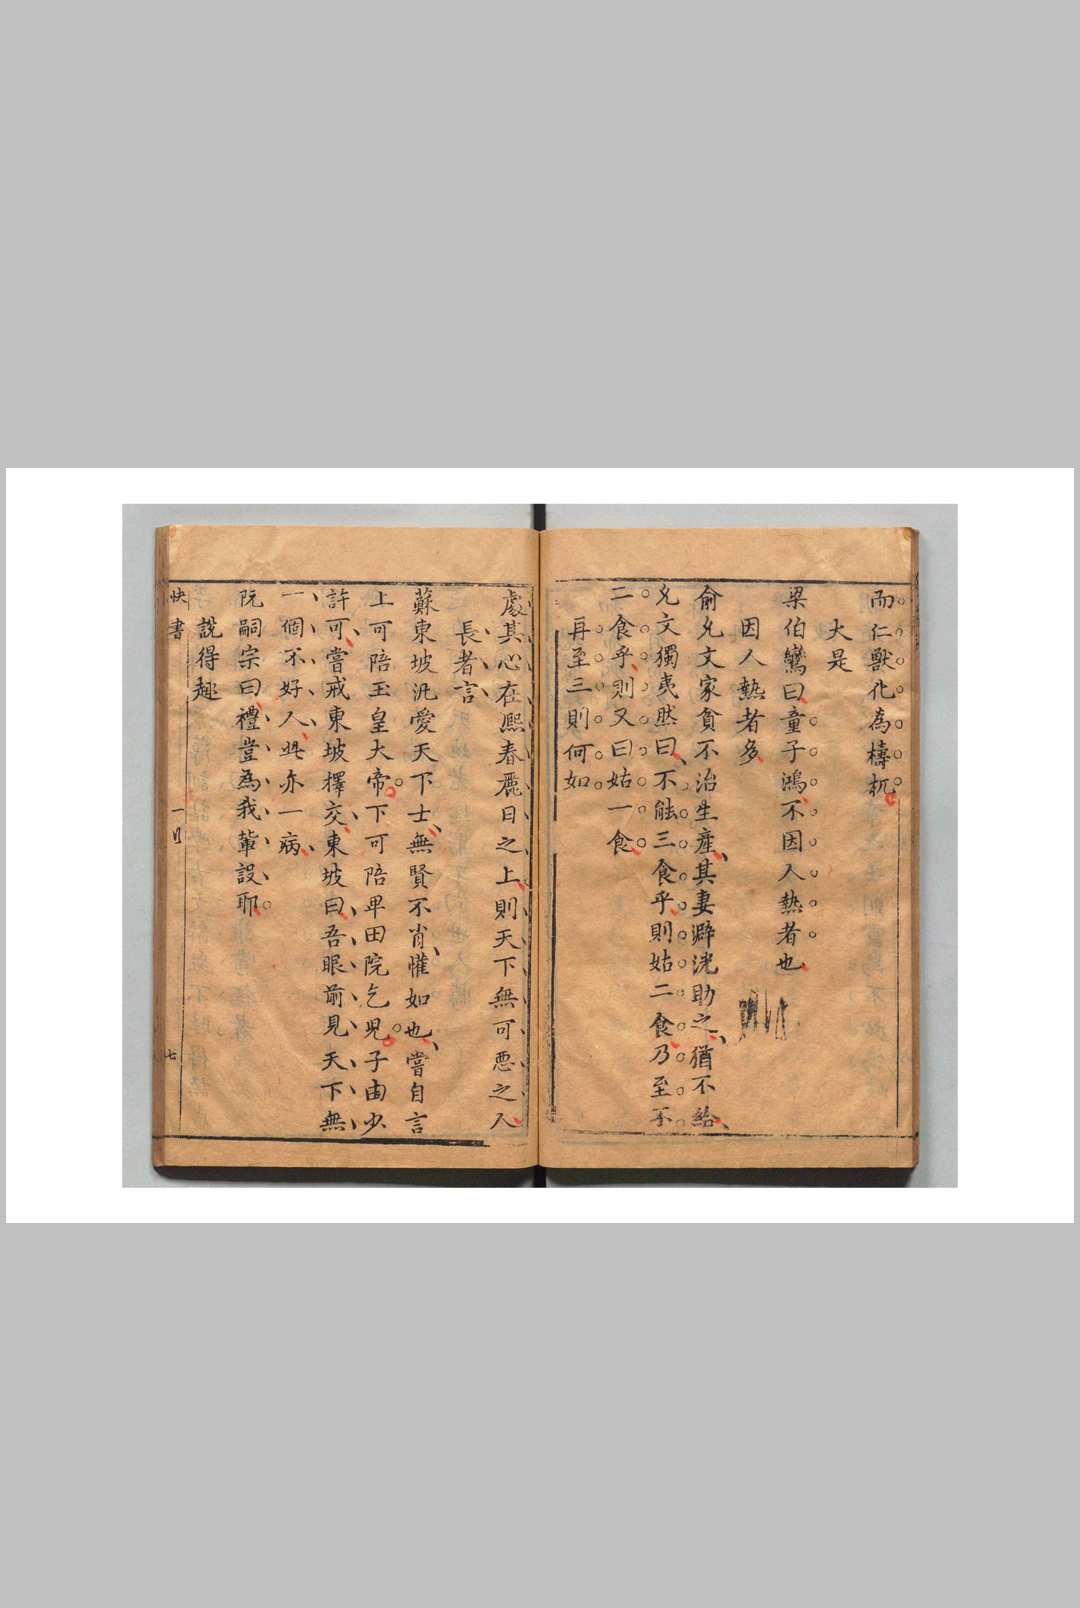 而仁獸化為檮杌
大是
梁伯鸞曰童子鴻不因人熱者也
因人熱者多
俞允文家貧不治生產其妻澼洸助之猶不給
允文獨夷然曰不能三食乎則姑二食乃至不
二食乎則又曰姑一食
再至三則何如
處其心在熙春麗日之上則天下無可惡之人
長者言
蘇東坡汎愛天下士無賢不肖懽如也嘗自言
上可陪玉皇大帝下可陪卑田院乞兒子由少
許可嘗戒東坡擇交東坡曰吾眼前見天下無
一個不好人此亦一病
阮嗣宗曰禮豈為我輩設耶
說得趣
快書
七